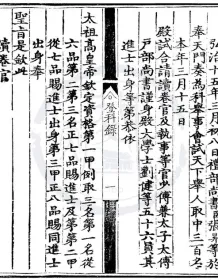 弘治十五年八日禮部尚書張昇等於
奉天門奏為科舉事會試天下舉人取中三百名
本年三月十五日
殿試合請讀卷官及執事等官少傅兼太子太傅
戶部尚書謹身殿大學士劉健等五十六員其
進士出身等第恭依
太祖高皇帝欽定資格第一甲例取三名第一名從
六品第二第三名正七品賜進士及第第二甲
從七品賜進士出身第三甲正八品賜同進士
出身奉
聖旨是欽此
讀卷官
登科錄
一